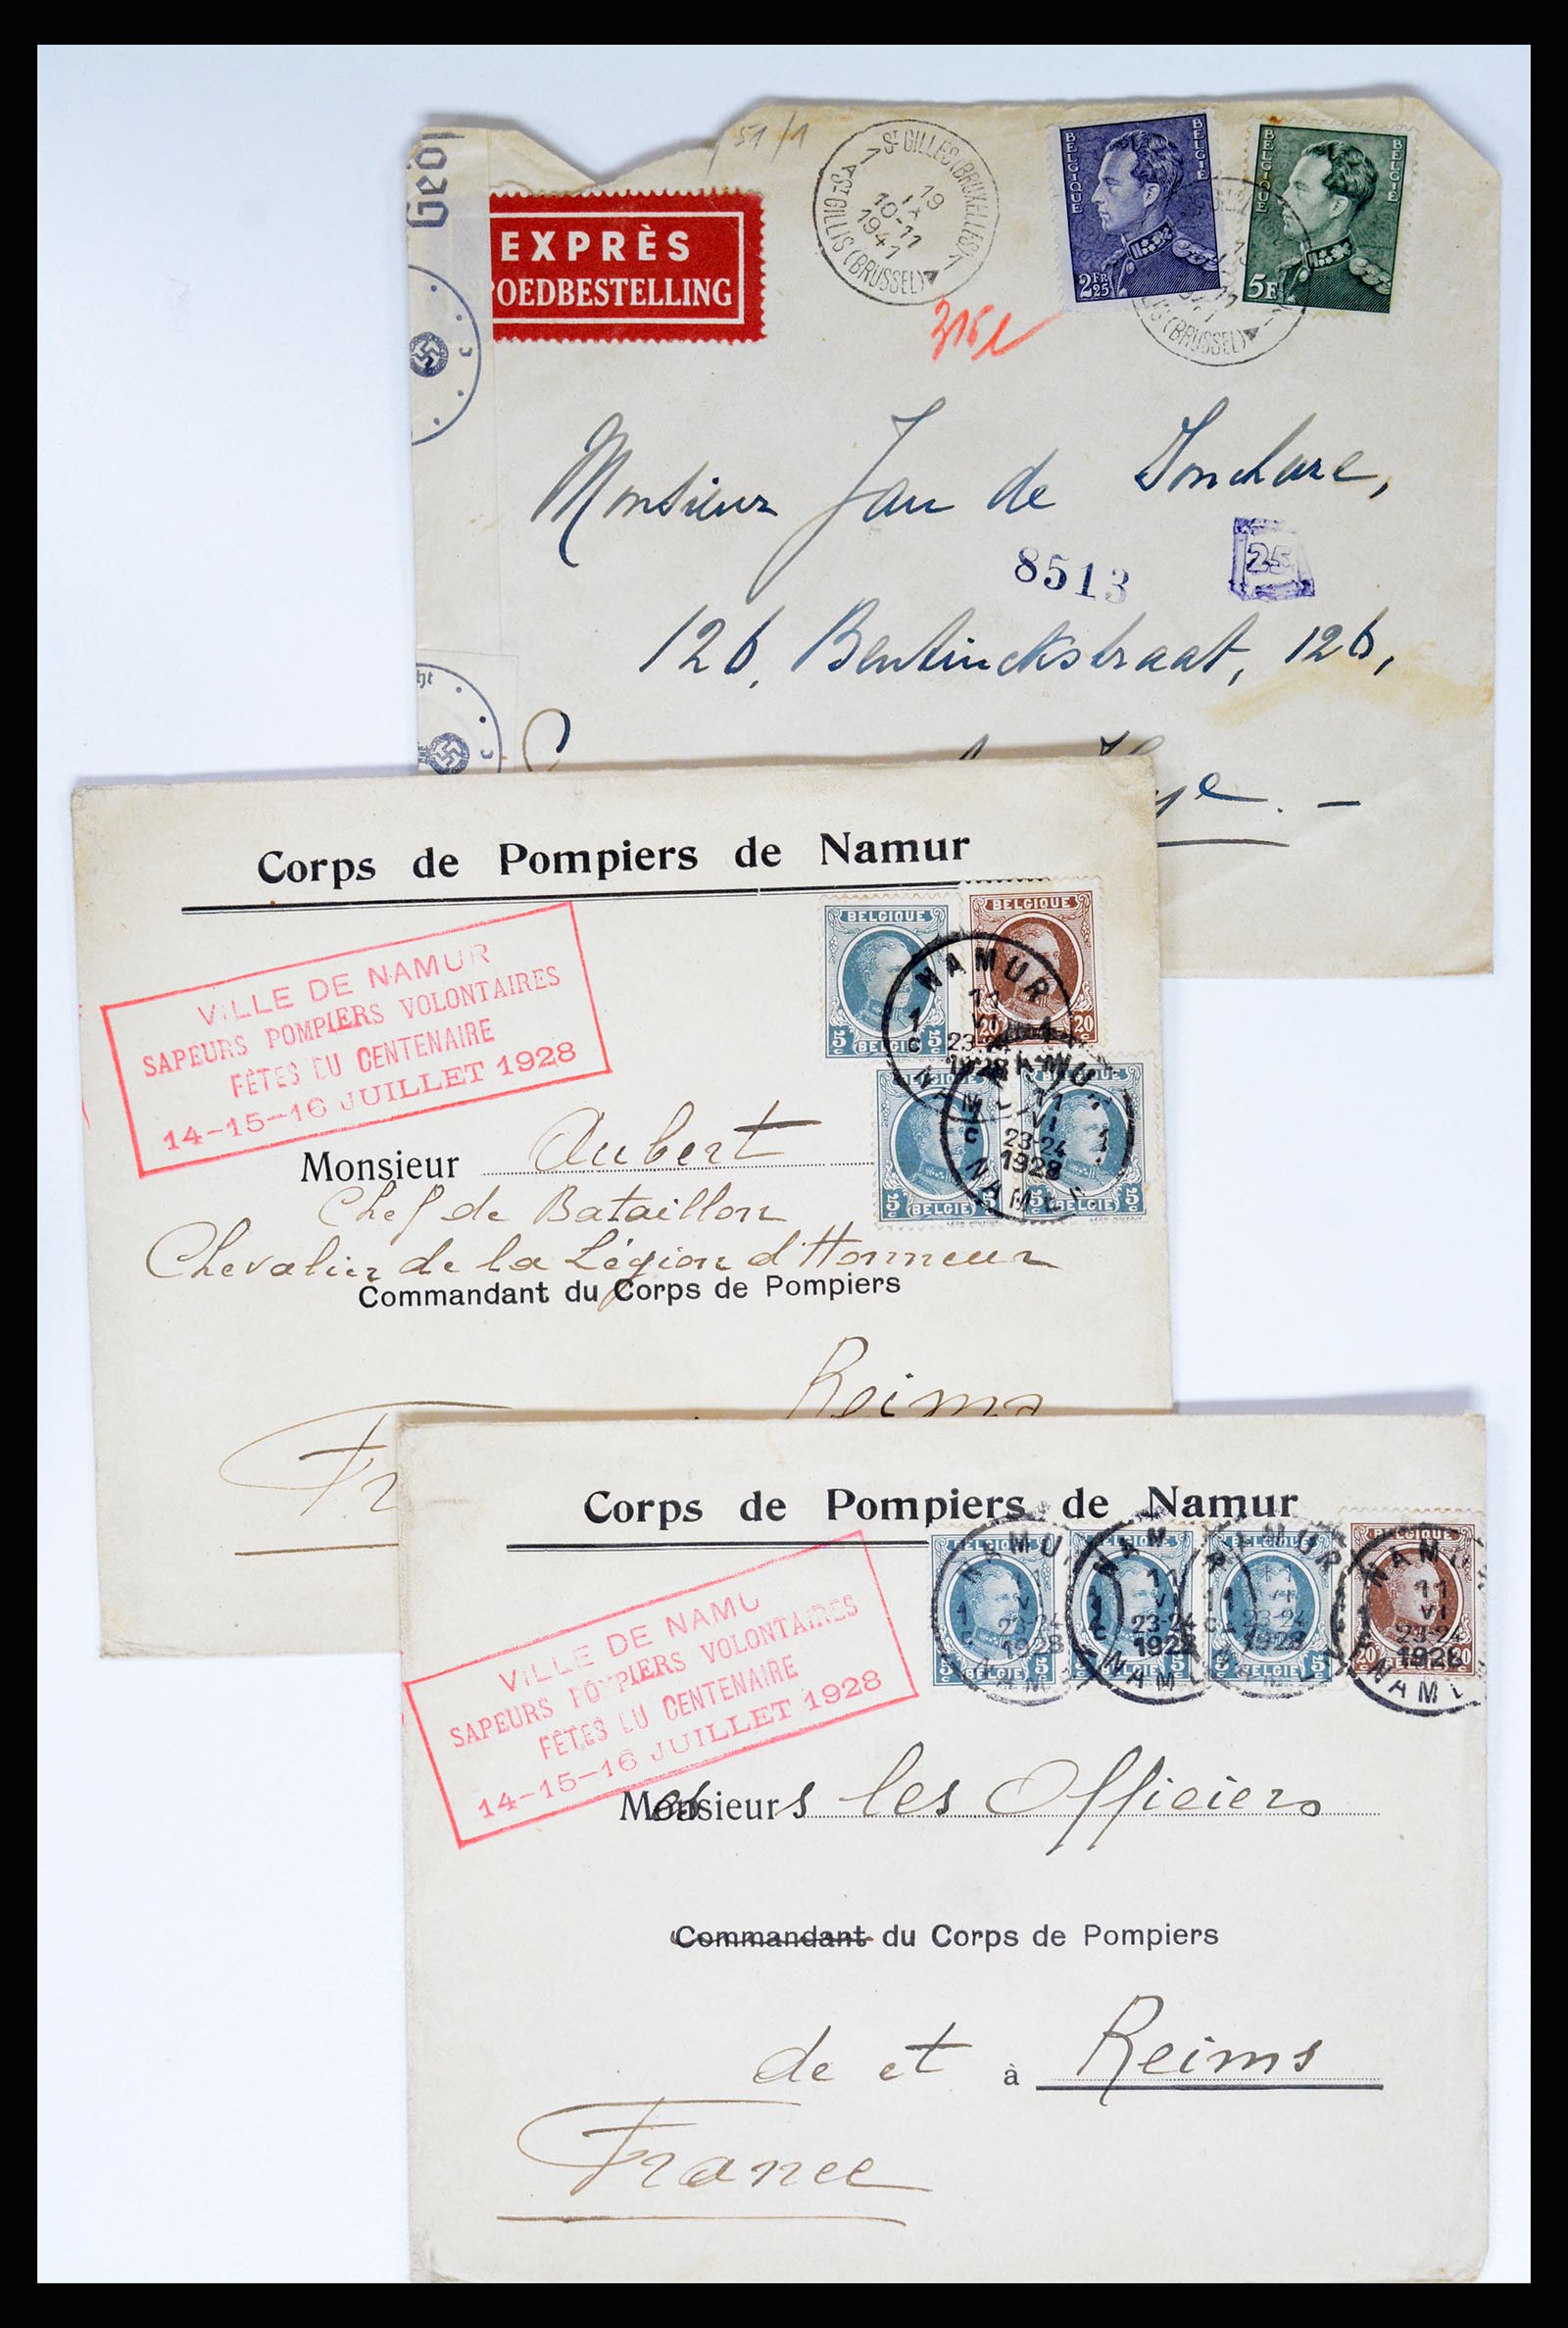 Geöf
51/1
EXPRÈS
POEDBESTELLING
1 ST GILLES (BRUXELLES) 1
ST GILLIS (BRUSSEL)
19
IX
10-11
1941
BELGIQUE BELGIE
2FR 25
BELGIQUE BELGIE
5F
(BRUSSEL)
Monsieur Jan de
8513
25
126, Bentinckstraat, 126,
ht
ye. -
Corps de Pompiers de Namur
VILLE DE NAMUR
SAPEURS POMPIERS VOLONTAIRES
FÊTES DU CENTENAIRE
14-15-16 JUILLET 1928
BELGIQUE
5c BELGIE 5c
BELGIQUE
20c 20c
NAMUR
11
VI
1 C 23-24
1928
5c (BELGIE) 5c
BELGIQUE
5c (BELGIE) 5c
NAMUR
11
VI
C 23-24 1
1928
NAMUR
Monsieur Aubert
Chef de Bataillon
Chevalier de la Légion d'Honneur
Commandant du Corps de Pompiers
Reims
Fr
Corps de Pompiers de Namur
VILLE DE NAMU
SAPEURS POMPIERS VOLONTAIRES
FÊTES DU CENTENAIRE
14-15-16 JUILLET 1928
BELGIQUE
NAMUR
11
VI
23-24
1928
NAM
5c BELGIE 5c
20c 20c
Messieurs les Officiers
Commandant du Corps de Pompiers
de et à Reims
France